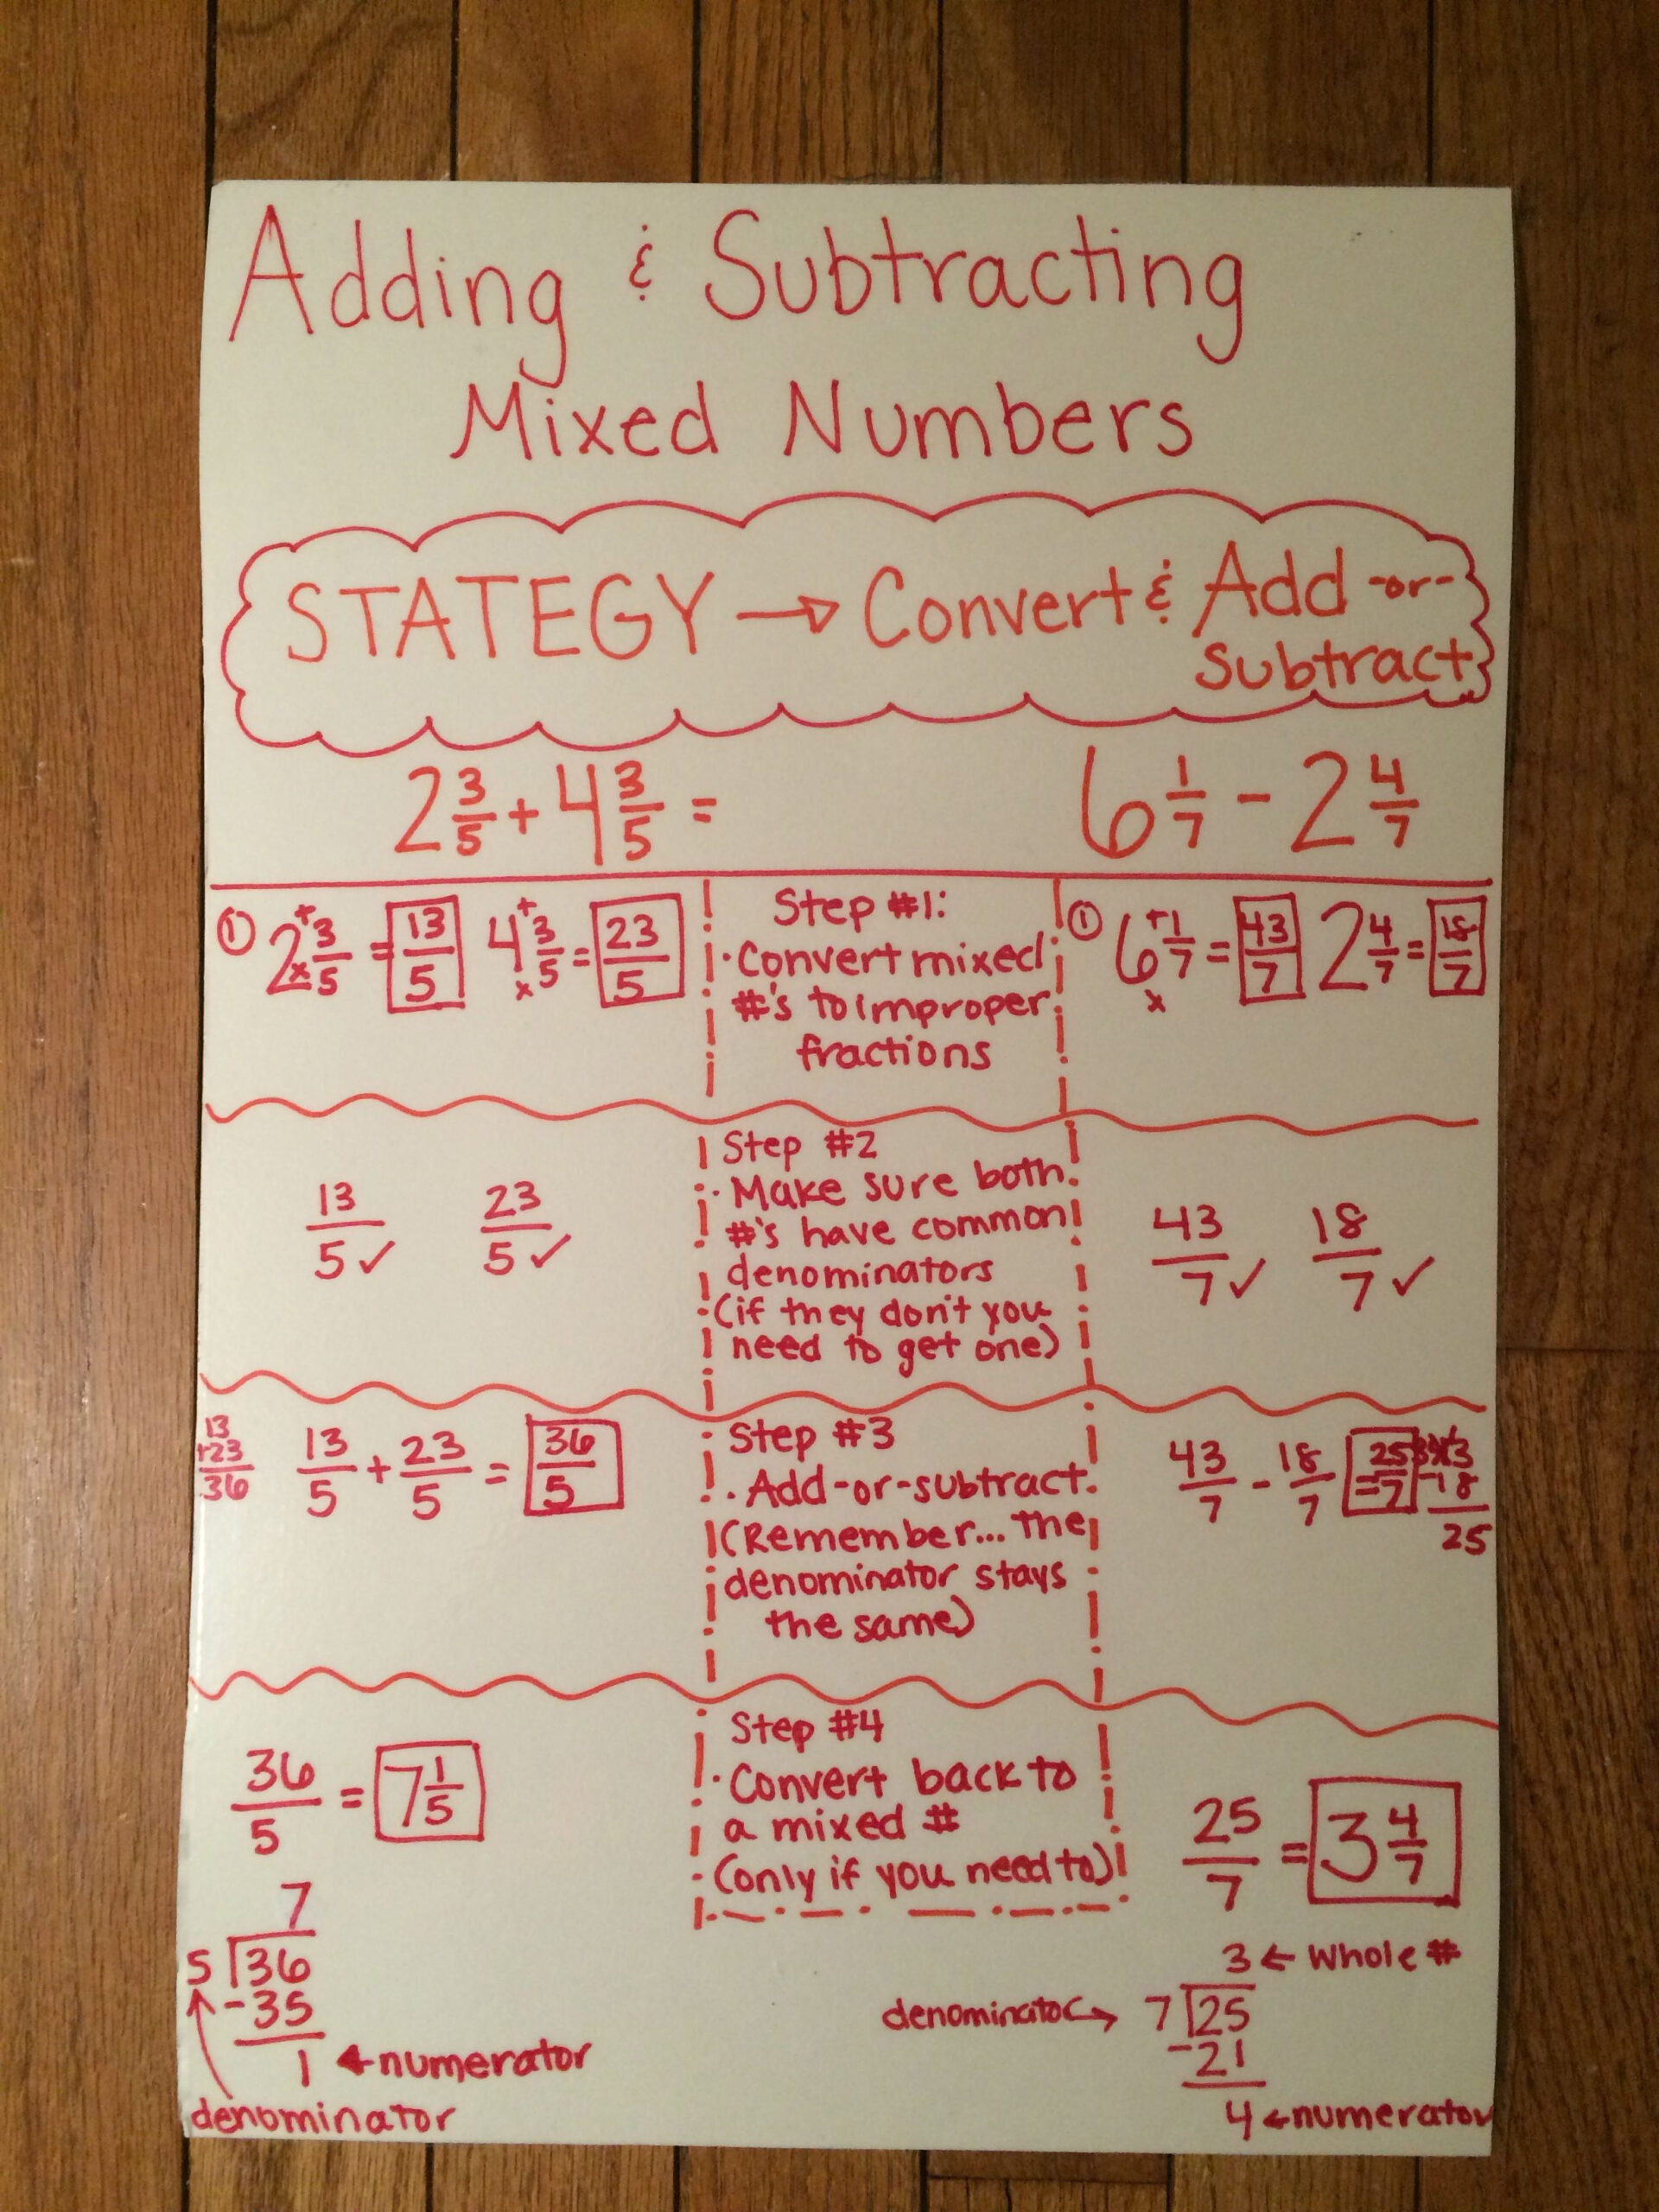 Adding & Subtracting
Mixed Numbers
STATEGY → Convert & Add -or-
Subtract
2 3/5 + 4 3/5 =
6 1/7 - 2 4/7
① 2 + 3/5 x = 13/5 4 + 3/5 x = 23/5
Step #1:
· Convert mixed
#'s to improper
fractions
① 6 + 1/7 x = 43/7 2 4/7 = 18/7
13/5 ✓ 23/5 ✓
Step #2
· Make sure both
#'s have common
denominators
(if they don't you
need to get one)
43/7 ✓ 18/7 ✓
13
+23
36
13/5 + 23/5 = 36/5
Step #3
· Add-or-subtract
(Remember... the
denominator stays
the same)
43/7 - 18/7 = 25/7
-18
25
36/5 = 7 1/5
7
5 36
-35
1 ←numerator
denominator
Step #4
· Convert back to
a mixed #
(only if you need to)
25/7 = 3 4/7
3 ← Whole #
denominator→ 7 25
-21
4 ←numerator